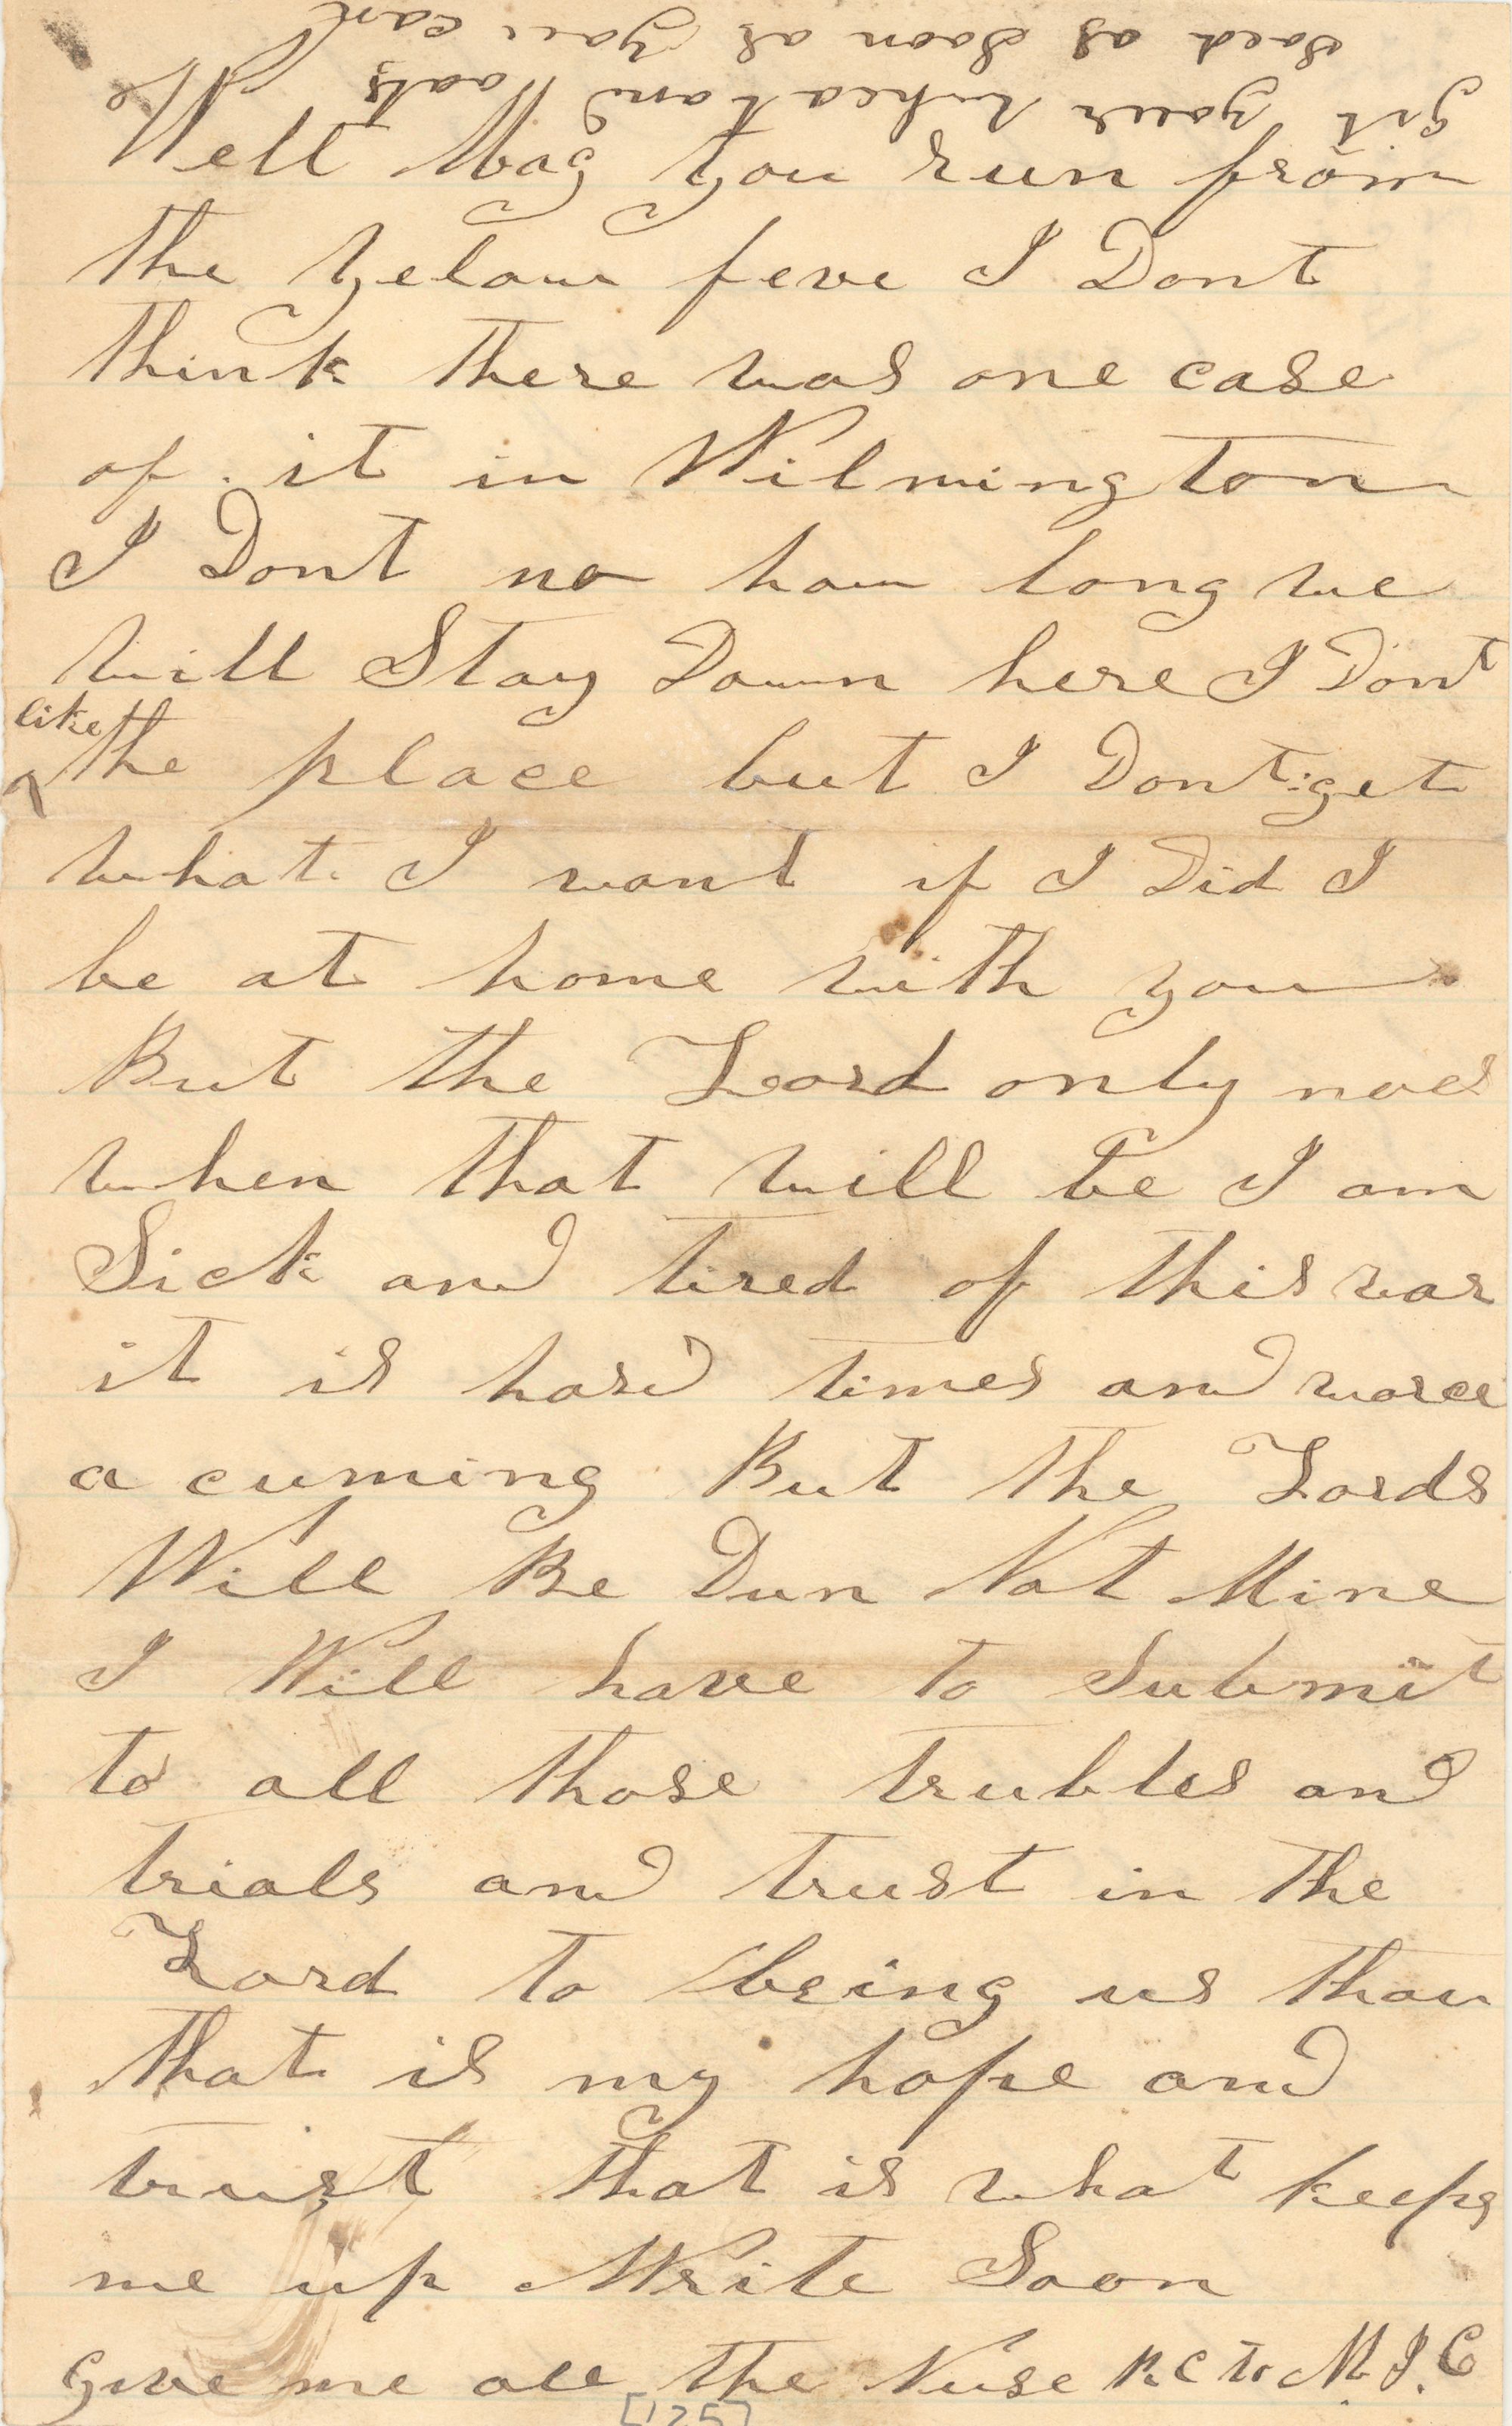 git your wheat and oats
soed as Soon as you can
Well Mag you run from
the yelow feve I Dont
think there was one case
of it in Wilmington
I Dont no how long we
will Stay Down here I Dont
like
the place but I Dont get
what I want if I Did I
be at home with you
But the Lord only noes
when that will be I am
Sick and tired of this war
it is hard times and worce
a cuming But the Lords
Will Be Dun Not Mine
I Will have to Submit
to all those trubles and
trials and trust in the
Lord to bring us thou
that is my hope and
trust that is what keeps
me up Write Soon
give me all the Nuse RC to M. J. C
[125]